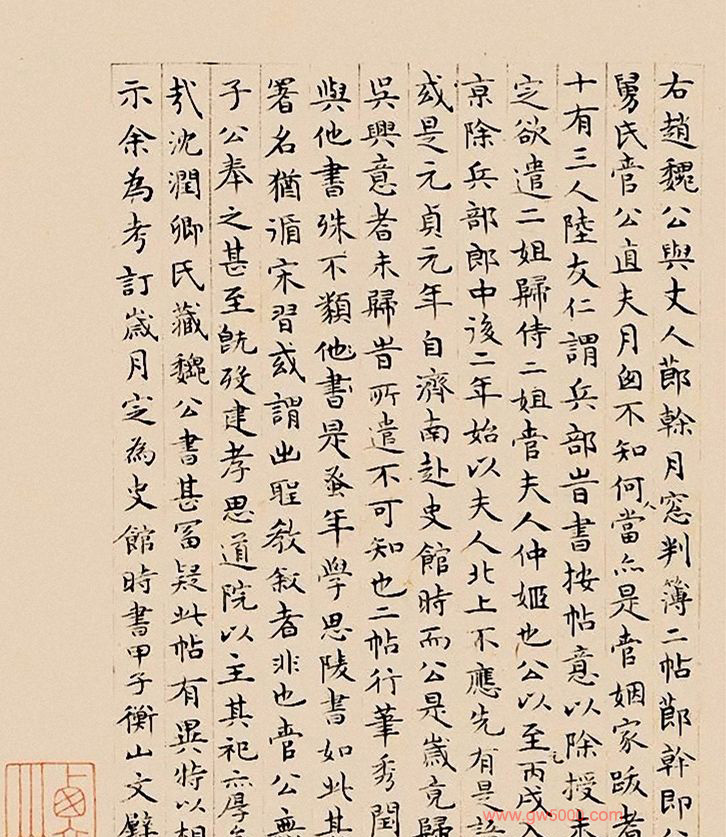 右趙魏公與丈人莭榦月窓判簿二帖莭幹即公
舅氏管公直夫月囪不知何人當亦是管姻家跋者
十有三人陸友仁謂兵部时書按帖意以除授未
定欲遣二姐歸侍二姐管夫人仲姬也公以至元丙戌入
京除兵部郎中後二年始以夫人北上不應先有是
或是元貞元年自濟南赴史館時而公是歲竟歸
吳興意者未歸时所遣不可知也二帖行筆秀
與他書殊不類他書是蚤年學思陵書如此其
署名猶循宋習或謂出聖教叙者非也管公無
子公奉之甚至旣歿建孝思道院以主其祀亦厚
㢤沈潤卿氏藏魏公書甚冨疑此帖有異特以相
示余為考訂歲月定為史館時書甲子衡山文璧
www.gw5000.com